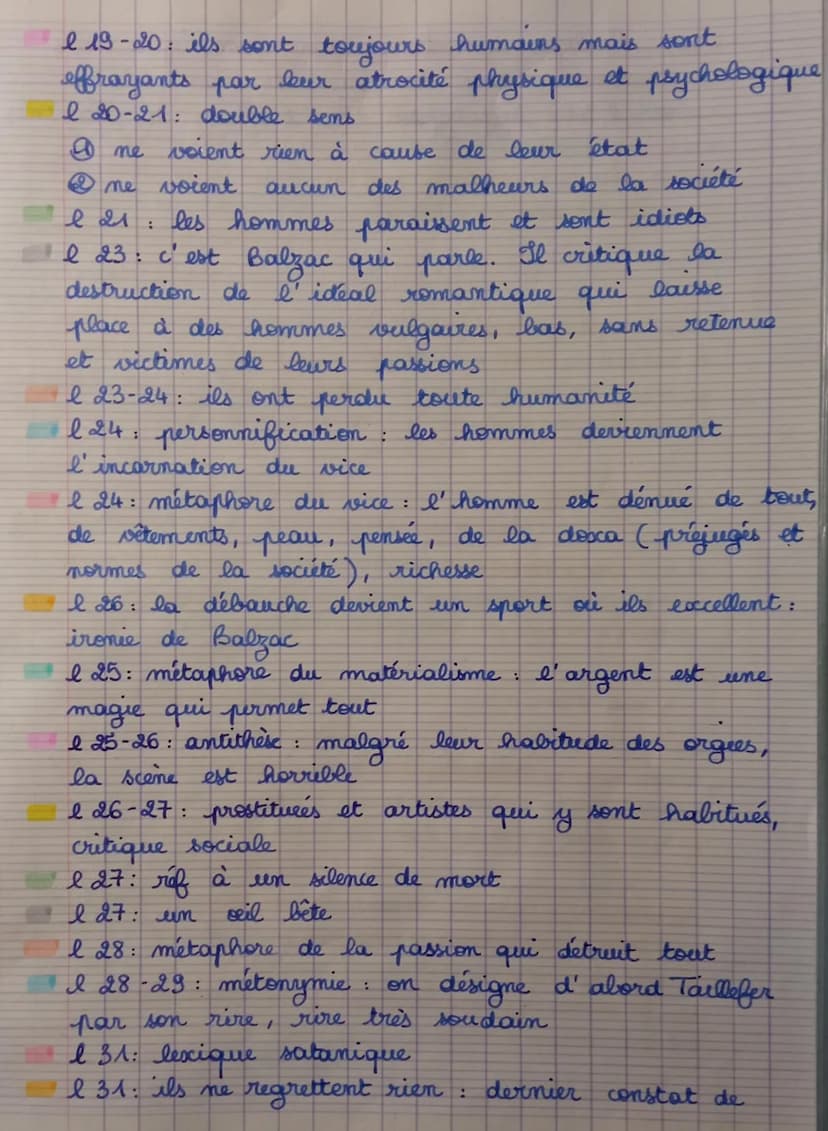 l 19-20 : ils sont toujours humains mais sont
effrayants par leur atrocité physique et psychologique
l 20-21 : double sens
① ne voient rien à cause de leur état
② ne voient aucun des malheurs de la société
l 21 : les hommes paraissent et sont idiots
l 23 : c'est Balzac qui parle. Il critique la
destruction de l'idéal romantique qui laisse
place à des hommes vulgaires, bas, sans retenue
et victimes de leurs passions
l 23-24 : ils ont perdu toute humanité
l 24 : personnification : les hommes deviennent
l'incarnation du vice
l 24 : métaphore du vice : l'homme est dénué de tout,
de vêtements, peau, pensée, de la doxa (préjugés et
normes de la société), richesse
l 26 : la débauche devient un sport où ils excellent :
ironie de Balzac
l 25 : métaphore du matérialisme : l'argent est une
magie qui permet tout
l 25-26 : antithèse : malgré leur habitude des orgies,
la scène est horrible
l 26-27 : prostituées et artistes qui y sont habitués,
critique sociale
l 27 : réf à un silence de mort
l 27 : un oeil bête
l 28 : métaphore de la passion qui détruit tout
l 28-29 : métonymie : on désigne d'abord Taillefer
par son rire, rire très soudain
l 31 : lexique satanique
l 31 : ils ne regrettent rien : dernier constat de